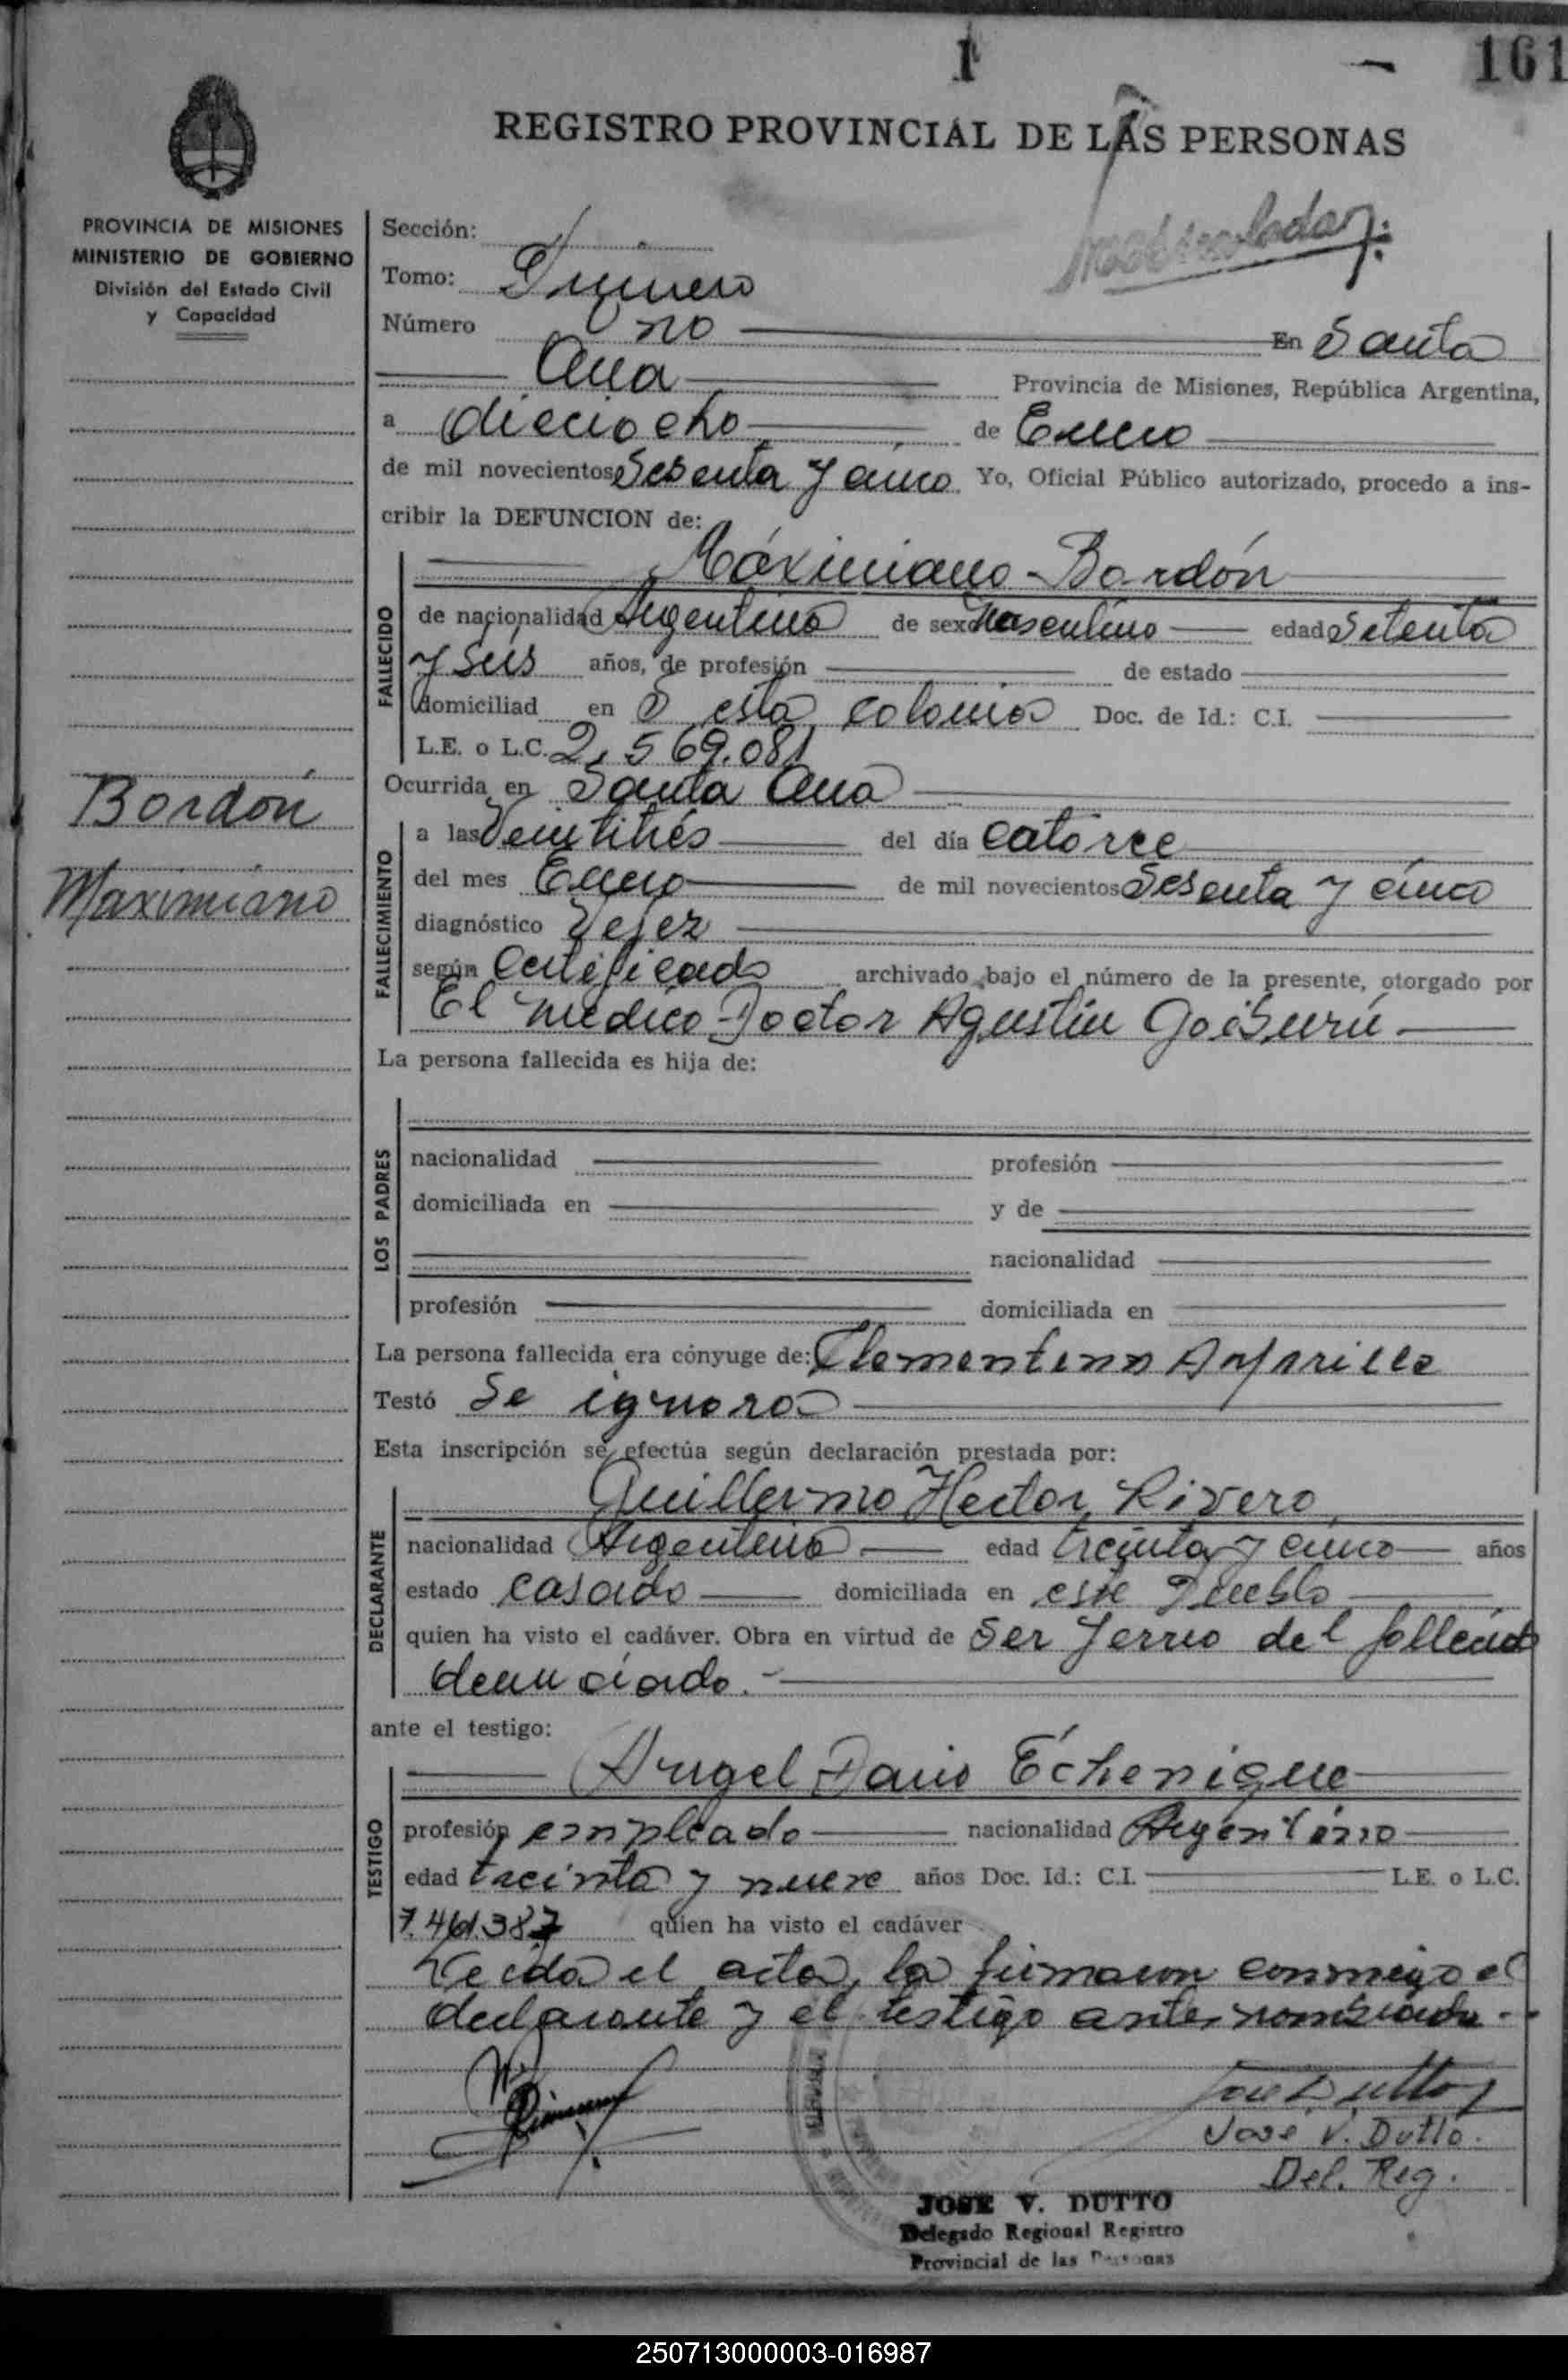 1 - 161
REGISTRO PROVINCIAL DE LAS PERSONAS
PROVINCIA DE MISIONES
MINISTERIO DE GOBIERNO
División del Estado Civil
y Capacidad
Sección:
Tomo: Primero
Número Uno En Santa
Ana Provincia de Misiones, República Argentina,
a dieciocho de Enero
de mil novecientos Sesenta y cinco Yo, Oficial Público autorizado, procedo a ins-
cribir la DEFUNCION de:
Máximiano Bordón
FALLECIDO
de nacionalidad Argentina de sexo Masculino edad Setenta
y Seis años, de profesión de estado
domiciliad en esta colonia Doc. de Id.: C.I.
L.E. o L.C. 2.569.081
Bordón
Maximiano
Ocurrida en Santa Ana
FALLECIMIENTO
a las Veintitrés del día catorce
del mes Enero de mil novecientos Sesenta y cinco
diagnóstico Vejez
según Certificado archivado bajo el número de la presente, otorgado por
El médico Doctor Agustín Goiburú
La persona fallecida es hija de:
LOS PADRES
nacionalidad profesión
domiciliada en y de
nacionalidad
profesión domiciliada en
La persona fallecida era cónyuge de: Clementina
Testó Se ignora
Esta inscripción se efectúa según declaración prestada por:
Guillermo Hector Rivero
DECLARANTE
nacionalidad Argentina edad treinta y cinco años
estado casado domiciliada en este Pueblo
quien ha visto el cadáver. Obra en virtud de Ser Yerno del fallecido
denunciado.-
ante el testigo:
Angel Dario Echenique
TESTIGO
profesión empleado nacionalidad Argentino
edad treinta y nueve años Doc. Id.: C.I. L.E. o L.C.
7.461.387 quien ha visto el cadáver
Leida el acta, la firmaron conmigo el
declarante y el testigo antes nombrado.-
José V. Dutto.
Del. Reg.
JOSE V. DUTTO
Delegado Regional Registro
Provincial de las Personas
250713000003-016987